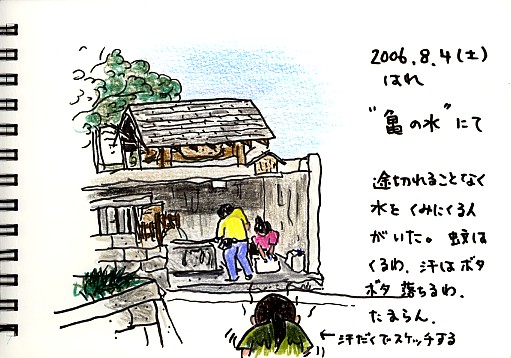 2006.8.4(土)
はれ
"亀の水"にて
途切れることなく
水をくみにくる人
がいた。蚊は
くるわ、汗はボタ
ボタ落ちるわ、
たまらん。
←汗だくでスケッチする